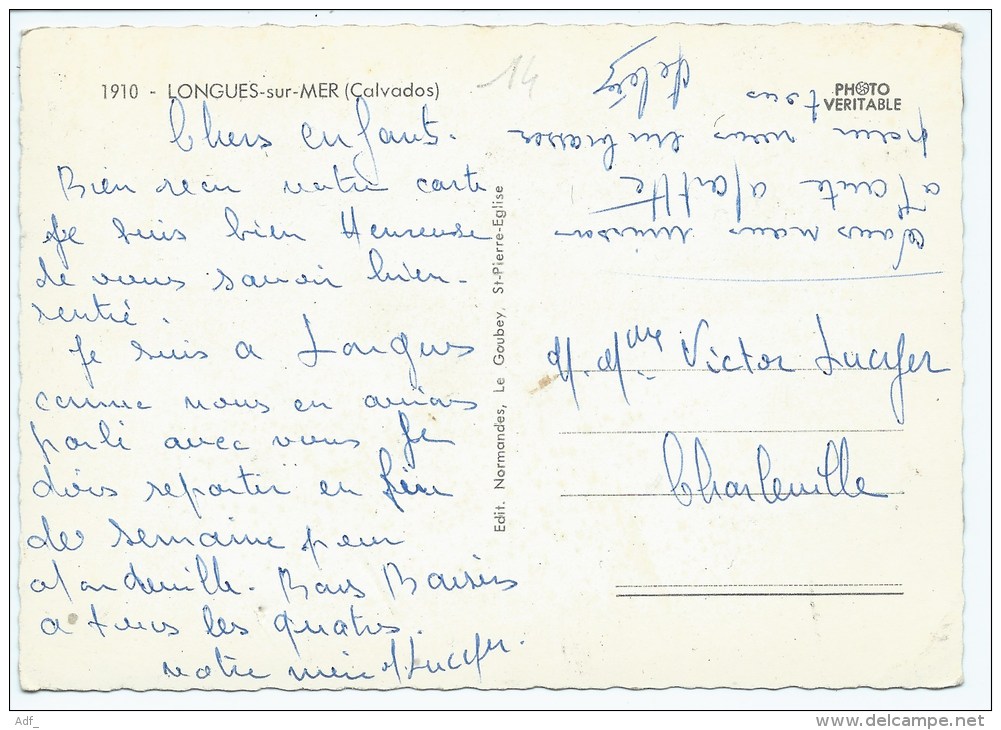 1910 - LONGUES-sur-MER (Calvados)
14
PHOTO
VERITABLE
Chers enfants.
Bien recu votre carte
Je suis bien Heureuse
de vous savoir bien
rentré.
Je suis a Longues
comme nous en avions
parlé avec vous Je
dois repartir en fin
de semaine pour
Bons Baisers
a tous les quatres.
votre mère Lucifer.
Edit. Normandes, Le Goubey, St-Pierre-Eglise
nous
a
pour vous embrasser
tous
M. Mme Victor Lucifer
Charleville
Adf_
www.delcampe.net